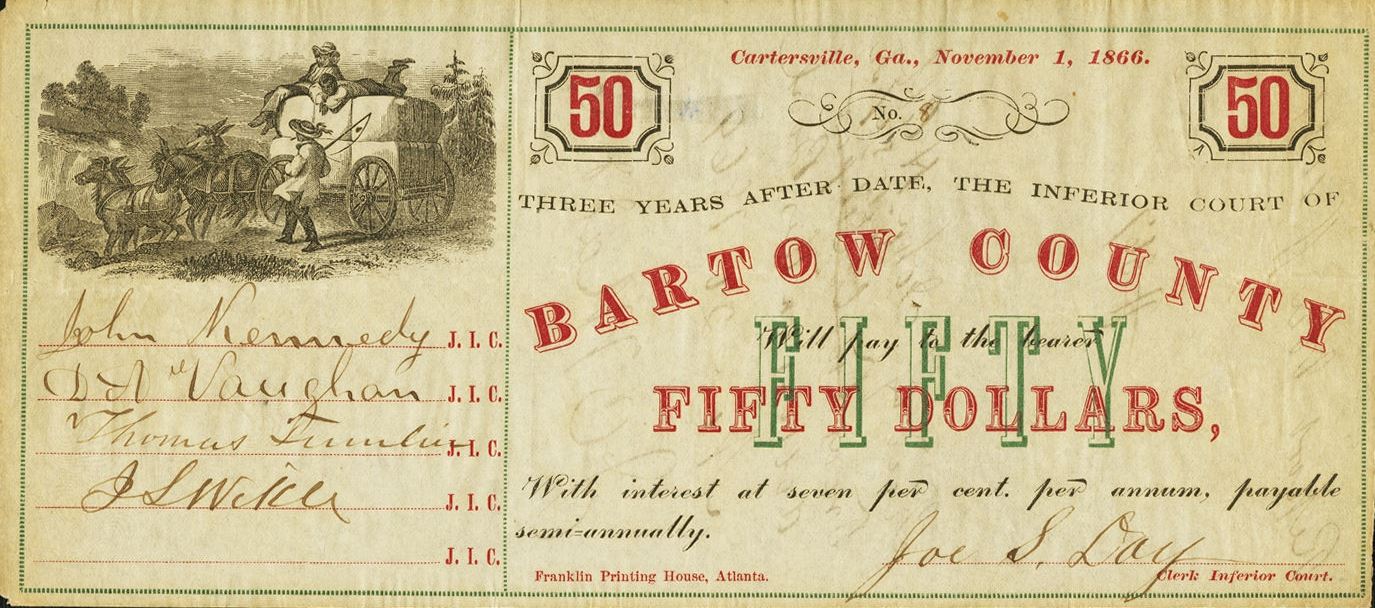 Cartersville, Ga., November 1, 1866.
50
No. 8
50
THREE YEARS AFTER DATE, THE INFERIOR COURT OF
BARTOW COUNTY
Will pay to the bearer
FIFTY
FIFTY DOLLARS,
With interest at seven per cent. per annum, payable
semi-annually.
Joe S. Day
Clerk Inferior Court.
Franklin Printing House, Atlanta.
John Kennedy J. I. C.
Vaughan J. I. C.
Thomas Tumlin J. I. C.
J. I. C.
J. I. C.